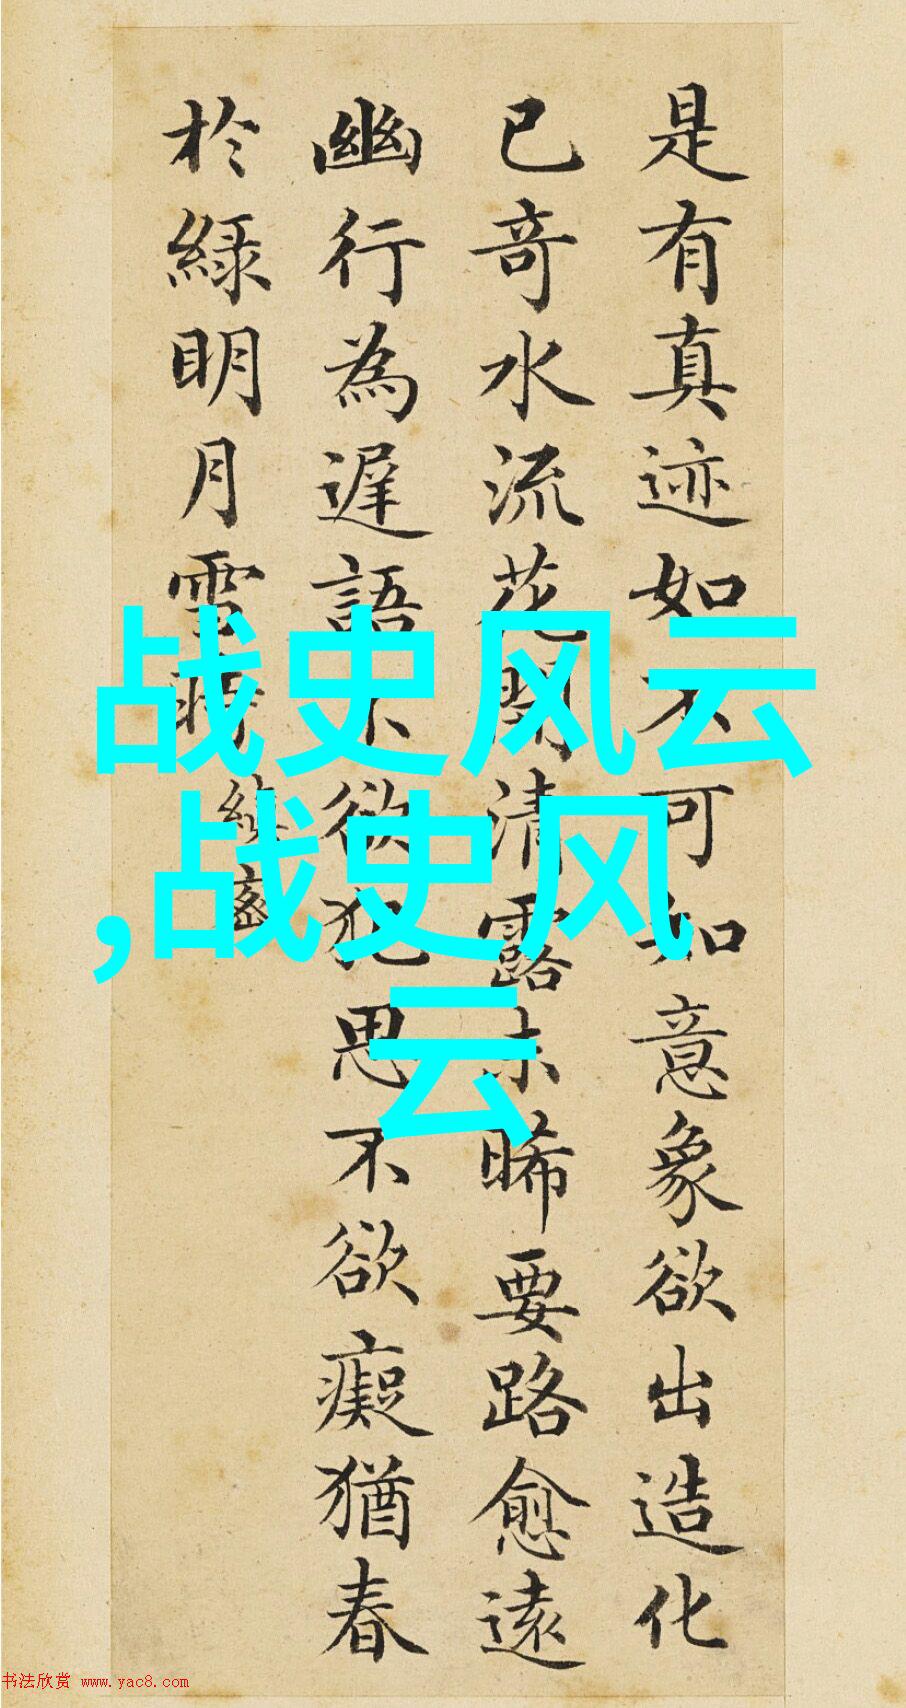 是有真迹如不可知意象欲出造化
已竒水流花開清露未晞要路愈遠
幽行為遲語不欲犯思不欲癡猶春
於綠明月雪時
縝密
战史风云
,战史风
云
书法欣赏 www.yac8.com